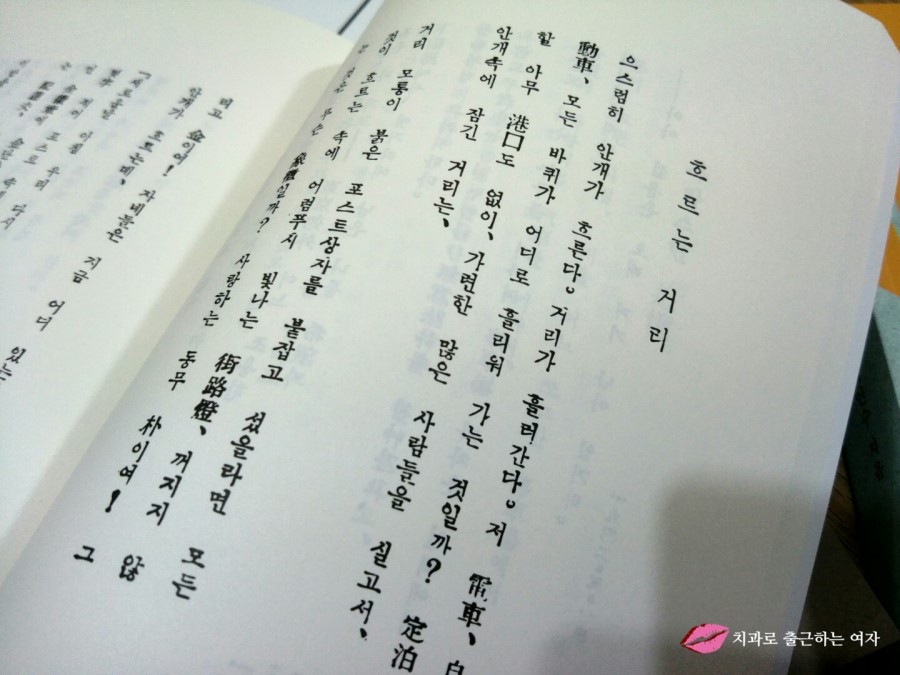 흐르는 거리
으스럼히 안개가 흐른다。 거리가 흘러간다。 저 電車、 自
動車、 모든 바퀴가 어디로 흘리워 가는 것일까? 定泊
할 아무 港口도 없이、 가련한 많은 사람들을 실고서、
안개속에 잠긴 거리는、
거리 모퉁이 붉은 포스트상자를 붙잡고 섰을라면 모든
것이 흐르는 속에 어렴푸시 빛나는 街路燈、 꺼지지 않
는 것은 무슨 象徵일까? 사랑하는 동무 朴이여! 그
리고 金이여! 자네들은 지금 어디 있는
안개가 흐르는데、
포스트
치과로 출근하는 여자